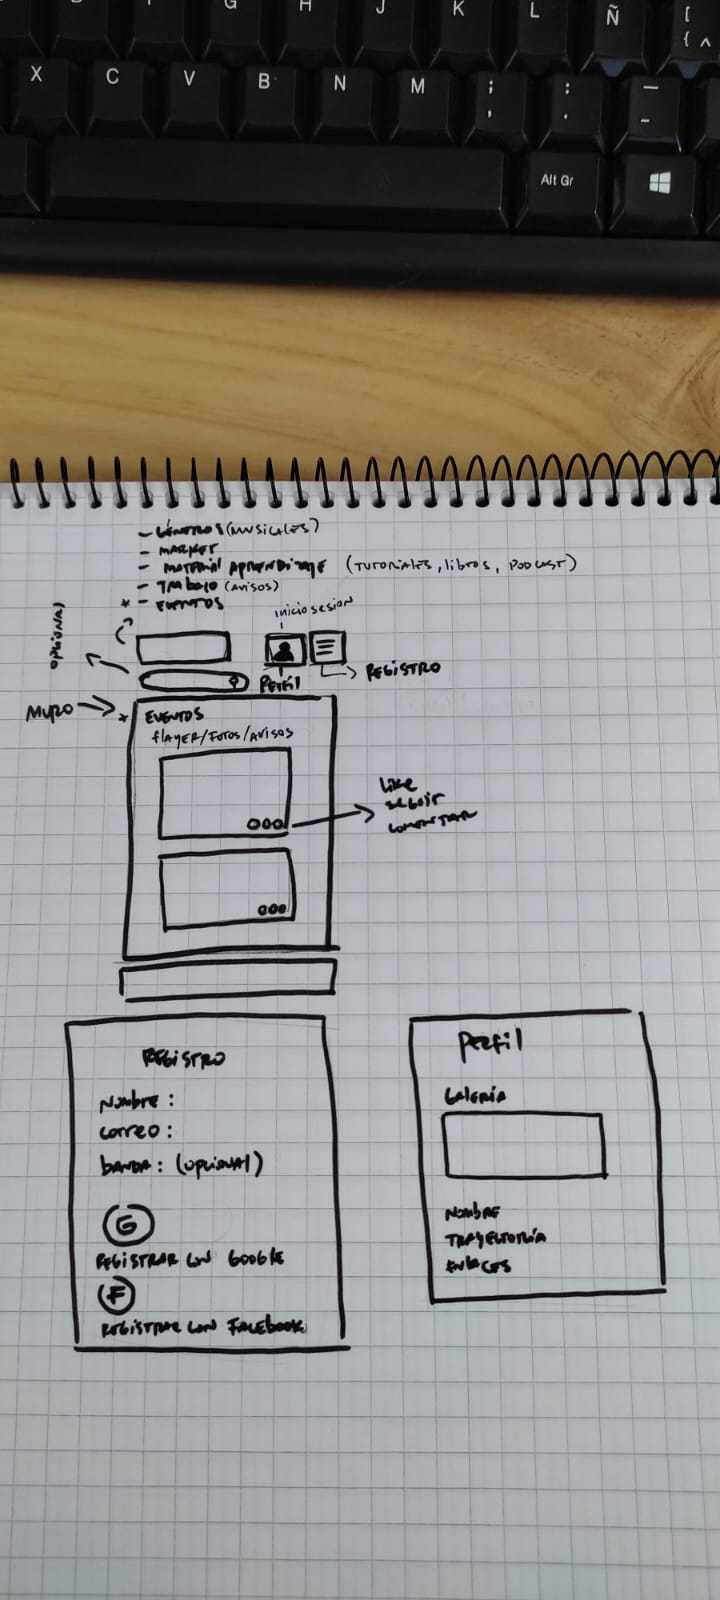 F G H J K L Ñ [
{ ^
X C V B N M ; : —
, . -
Alt Gr
- GÉNEROS (MUSICALES)
- MARKET
- MATERIAL APRENDIZAJE (TUTORIALES, libros, PODCAST)
- TRABAJO (AVISOS)
* - EVENTOS
OPCIONAL
inicio sesion
PERFIL
REGISTRO
MURO
* EVENTOS
flAYER/FOTOS/AVISOS
like
SEGUIR
COMENTAR
REGISTRO
NOMBRE :
CORREO :
BANDA : (OPCIONAL)
G
REGISTRAR CON GOOGLE
F
REGISTRAR CON FACEBOOK
PERFIL
GALERÍA
NOMBRE
TRAYECTORIA
ENLACES